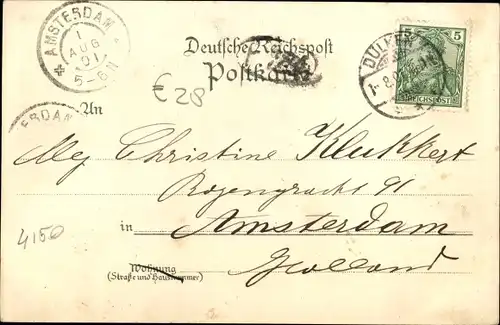 AMSTERDAM
1
AUG
01
5-6N
Deutsche Reichspost
Postkarte
DÜLKEN
1-8.01
5
REICHSPOST
€28
An
Mej Christine Klukkert
Rozengracht 91
in Amsterdam
Holland
4150
Wohnung
(Straße und Hausnummer)